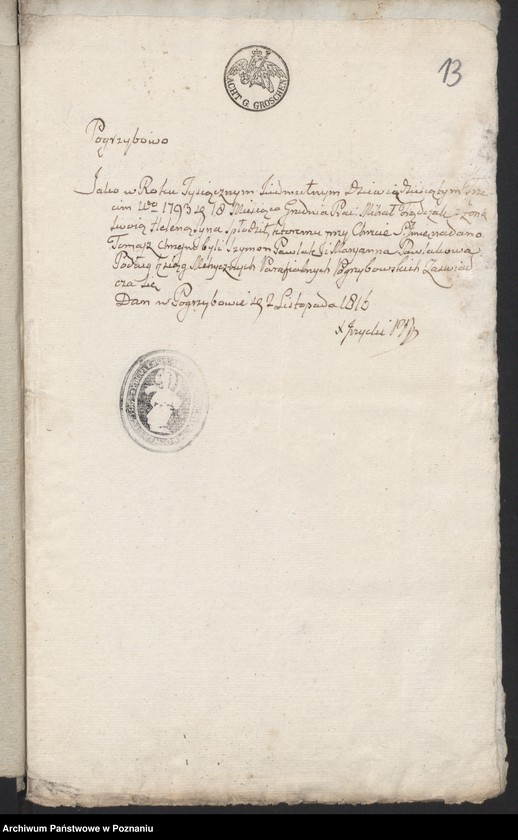 13
ACHT G. GROSCHEN
Pogrzybowo
Jako w Roku Tysiącznym Siedmsetnym Dziewiędziesiątym Trze-
cim 1793 18 Miesiąca Grudnia Prac: Michał z żoną
swoią Heleną syna spłodził, ktoremu przy Chrzcie S. Imie nadano
Tomasz Chrzestni byli Szymon Pawlak i Maryanna Pawlakowa
Podług Xsiąg Metrycznych Parafialnych Pogrzybowskich Zaświad
cza się
Dan w Pogrzybowie 2 Listopada 1816
X
Archiwum Państwowe w Poznaniu